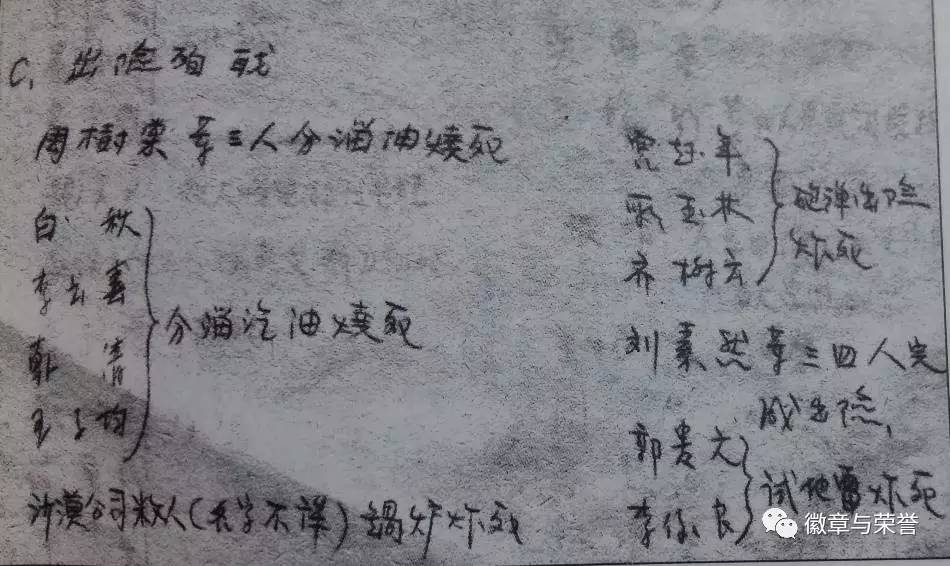 C、出险殉职
周树棠等三人分溜油烧死
白 秋
李玄
韩 清
王子均
分溜汽油烧死
沙漠公司数人(名字不详)锅炉炸死
赵年
玉林
齐树玄
砲弹出险
炸死
刘素然等三四人完
成出险,
郭贵元
李保良
试地雷炸死
徽章与荣誉